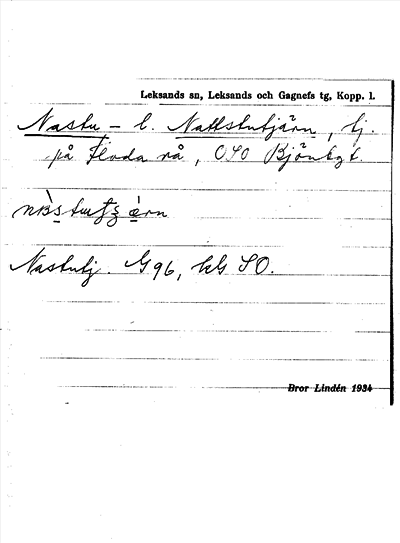 Leksands sn, Leksands och Gagnefs tg, Kopp. l.
Nastu- l. Nattstutjärn, tj.
på Floda rå, OSO Björktgt.
Nastutj. G 96, kG SO.
Bror Lindén 1934